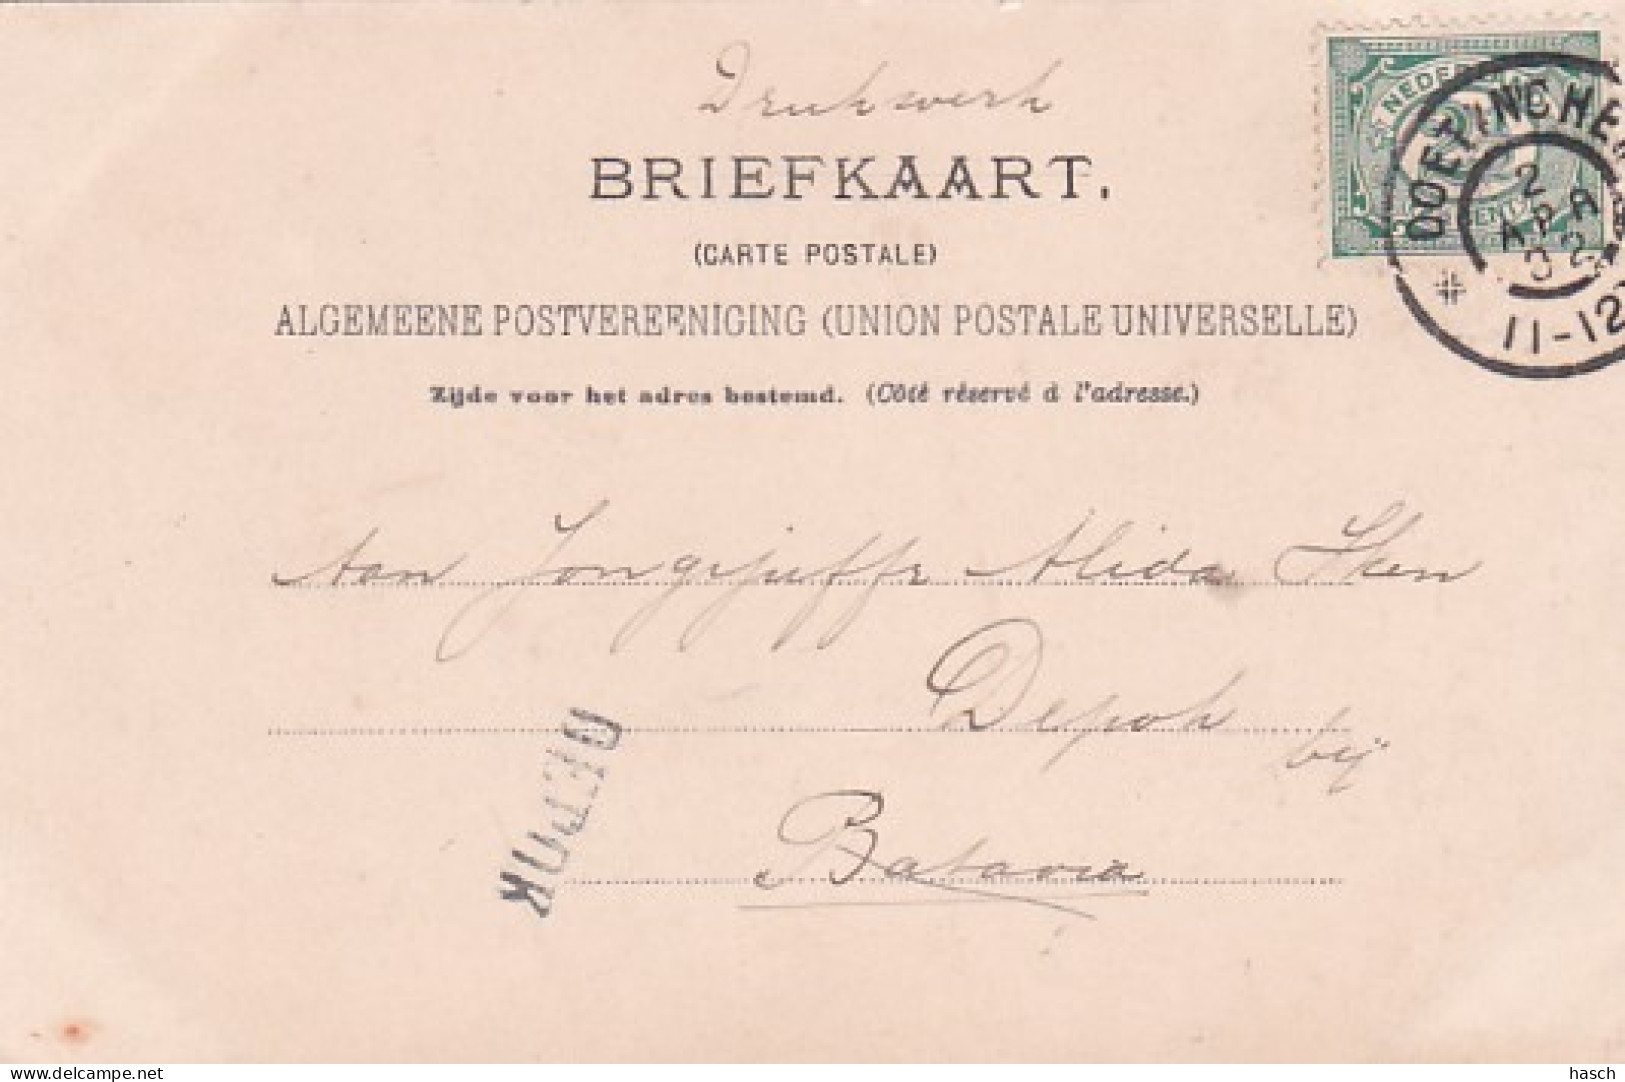 Drukwerk
NEDER
DOETINCHE
2
APR
02
11-12
BRIEFKAART.
(CARTE POSTALE)
ALGEMEENE POSTVEREENIGING (UNION POSTALE UNIVERSELLE)
Zijde voor het adres bestemd. (Côté réservé à l'adresse.)
Aan Jongejuffr Alida
Depok
bij
Batavia
Delcampe.net
hasch